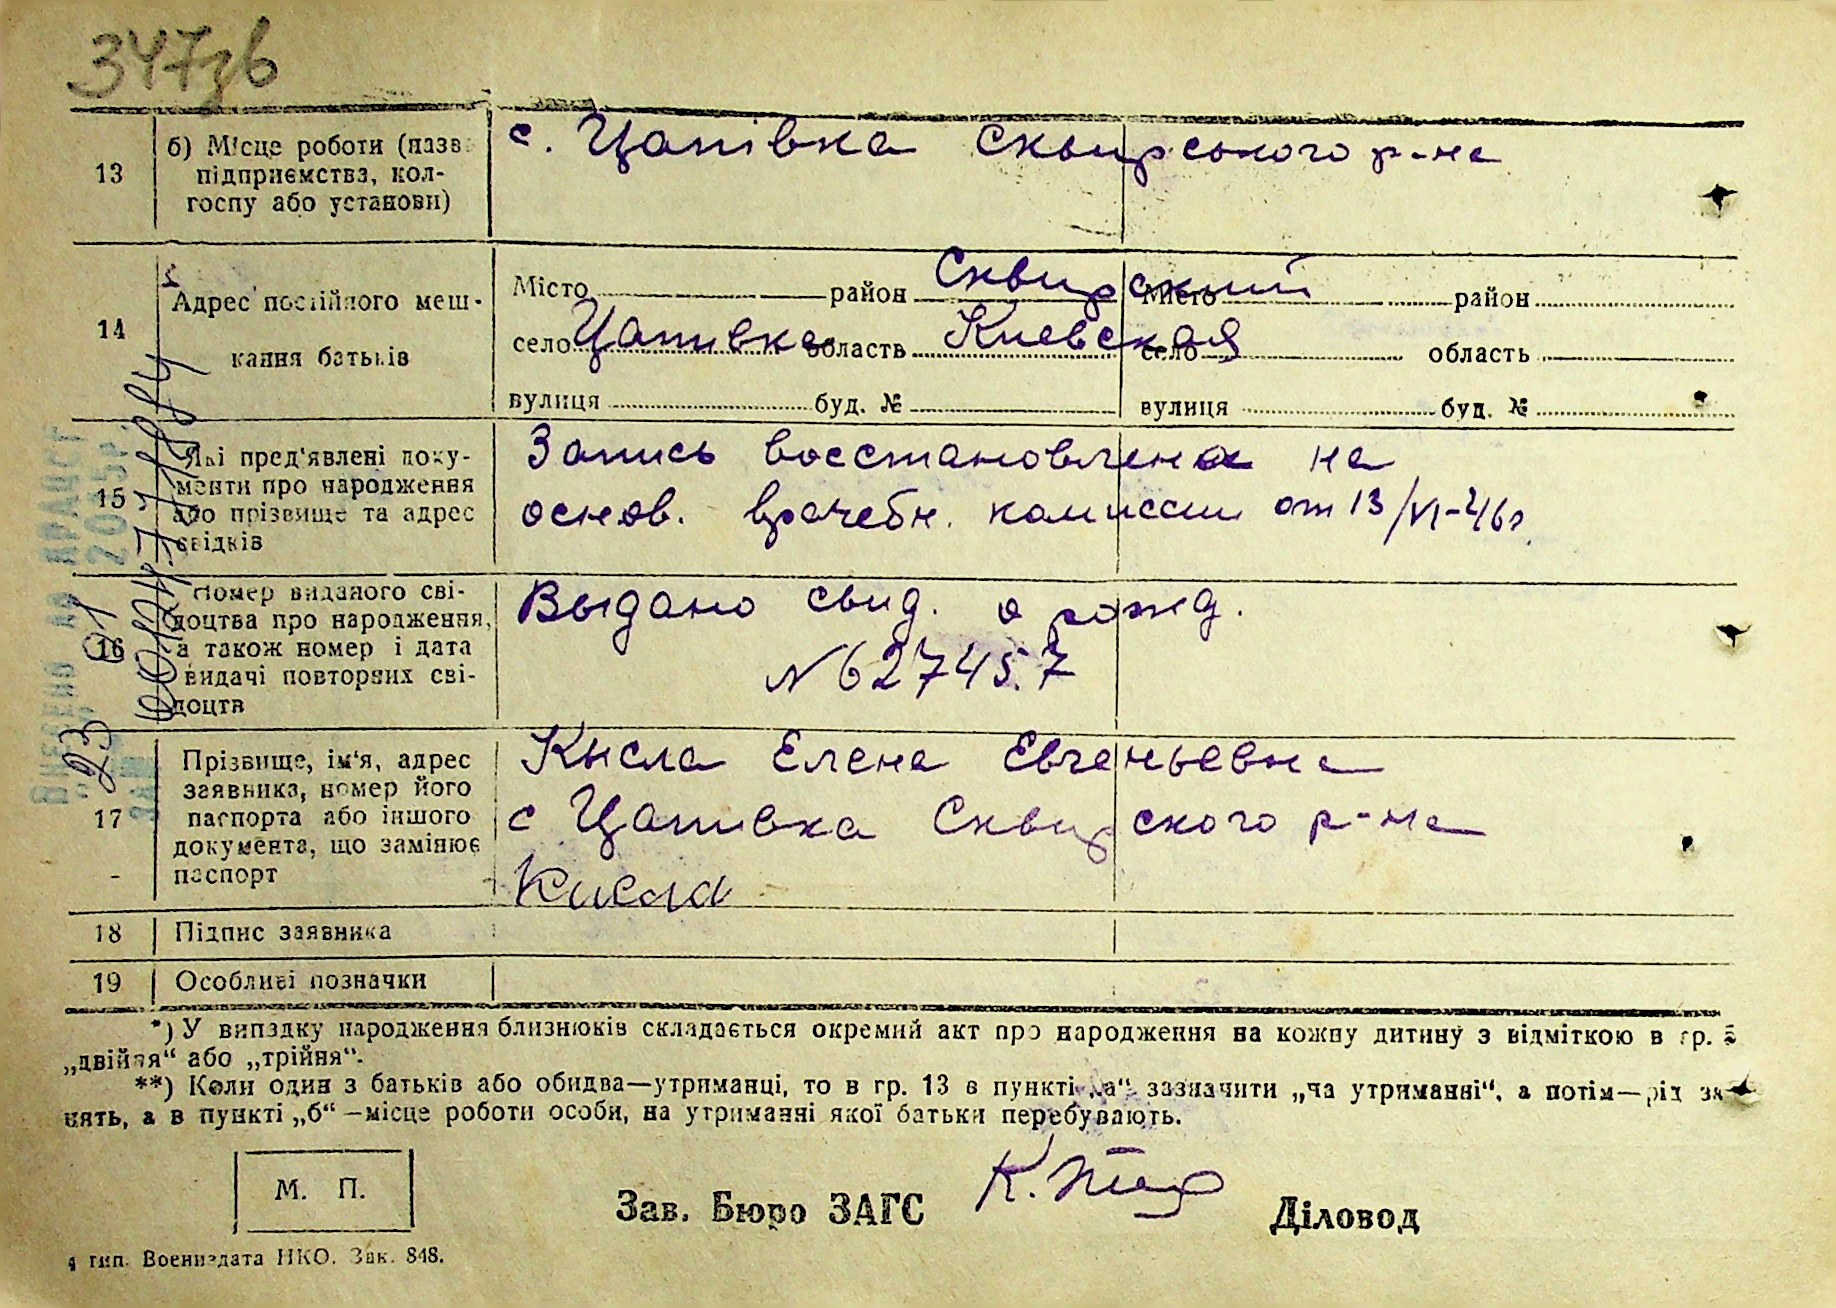 347зв
13
б) Місце роботи (назва
підприємства, кол-
госпу або установи)
с. Цапівка Сквирського р-на
14
Адрес постійного меш-
кання батьків
Місто район Сквирский Місто район
село Цапивка область Киевская село область
вулиця буд. № вулиця буд. №
15
Які пред'явлені доку-
менти про народження
або прізвище та адрес
свідків
Запись восстановлена на
основ. врачебн. комиссии от 13/VI-46г.
16
Номер виданого сві-
доцтва про народження,
а також номер і дата
видачі повторних сві-
доцтв
Выдано свид. о рожд.
№627457
17
Прізвище, ім'я, адрес
заявника, номер його
паспорта або іншого
документа, що замінює
паспорт
Кисла Елена Евгеньевна
с Цапивка Сквирского р-на
Кисла
18
Підпис заявника
19
Особливі позначки
*) У випадку народження близнюків складається окремий акт про народження на кожну дитину з відміткою в гр.
„двійня“ або „трійня“.
**) Коли один з батьків або обидва—утриманці, то в гр. 13 в пункті „а“ зазначити „на утриманні“, а потім—рід за-
нять, а в пункті „б“—місце роботи особи, на утриманні якої батьки перебувають.
М. П.
Зав. Бюро ЗАГС
Діловод
тип. Воениздата НКО. Зак. 848.